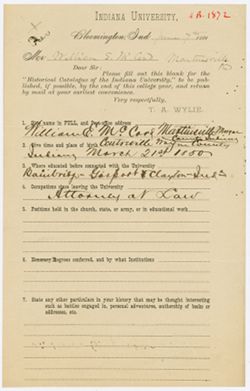 INDIANA UNIVERSITY,
LB. 1872
Bloomington, Ind.,
Mr William E. McCord Martinsville
Dear Sir:
Please fill out this blank for the
"Historical Catalogue of the Indiana University," to be
published, if possible, by the end of this college year, and return
by mail at your earliest convenience.
Very respectfully,
T. A. WYLIE.
1. Your name in FULL, and Post-office address
William E. McCord Martinsville
2. Give time and place of birth
Indiana March 21st 1850
3. Where educated before connected with the University
Bainbridge Gosport & Clayton Inds
4. Occupations since leaving the University
Attorney at Law
5. Positions held in the church, state, or army, or in educational work
6. Honorary Degrees conferred, and by what Institutions
7. State any other particulars in your history that may be thought interesting
such as battles engaged in, personal adventures, authorship of books or
addresses, etc.